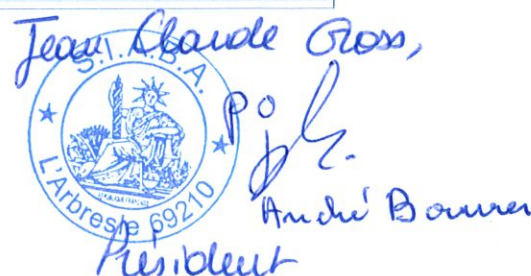 Jean Claude Gross,
S.I.A.B.A.
PO
L'Arbresle 69210
André
Président